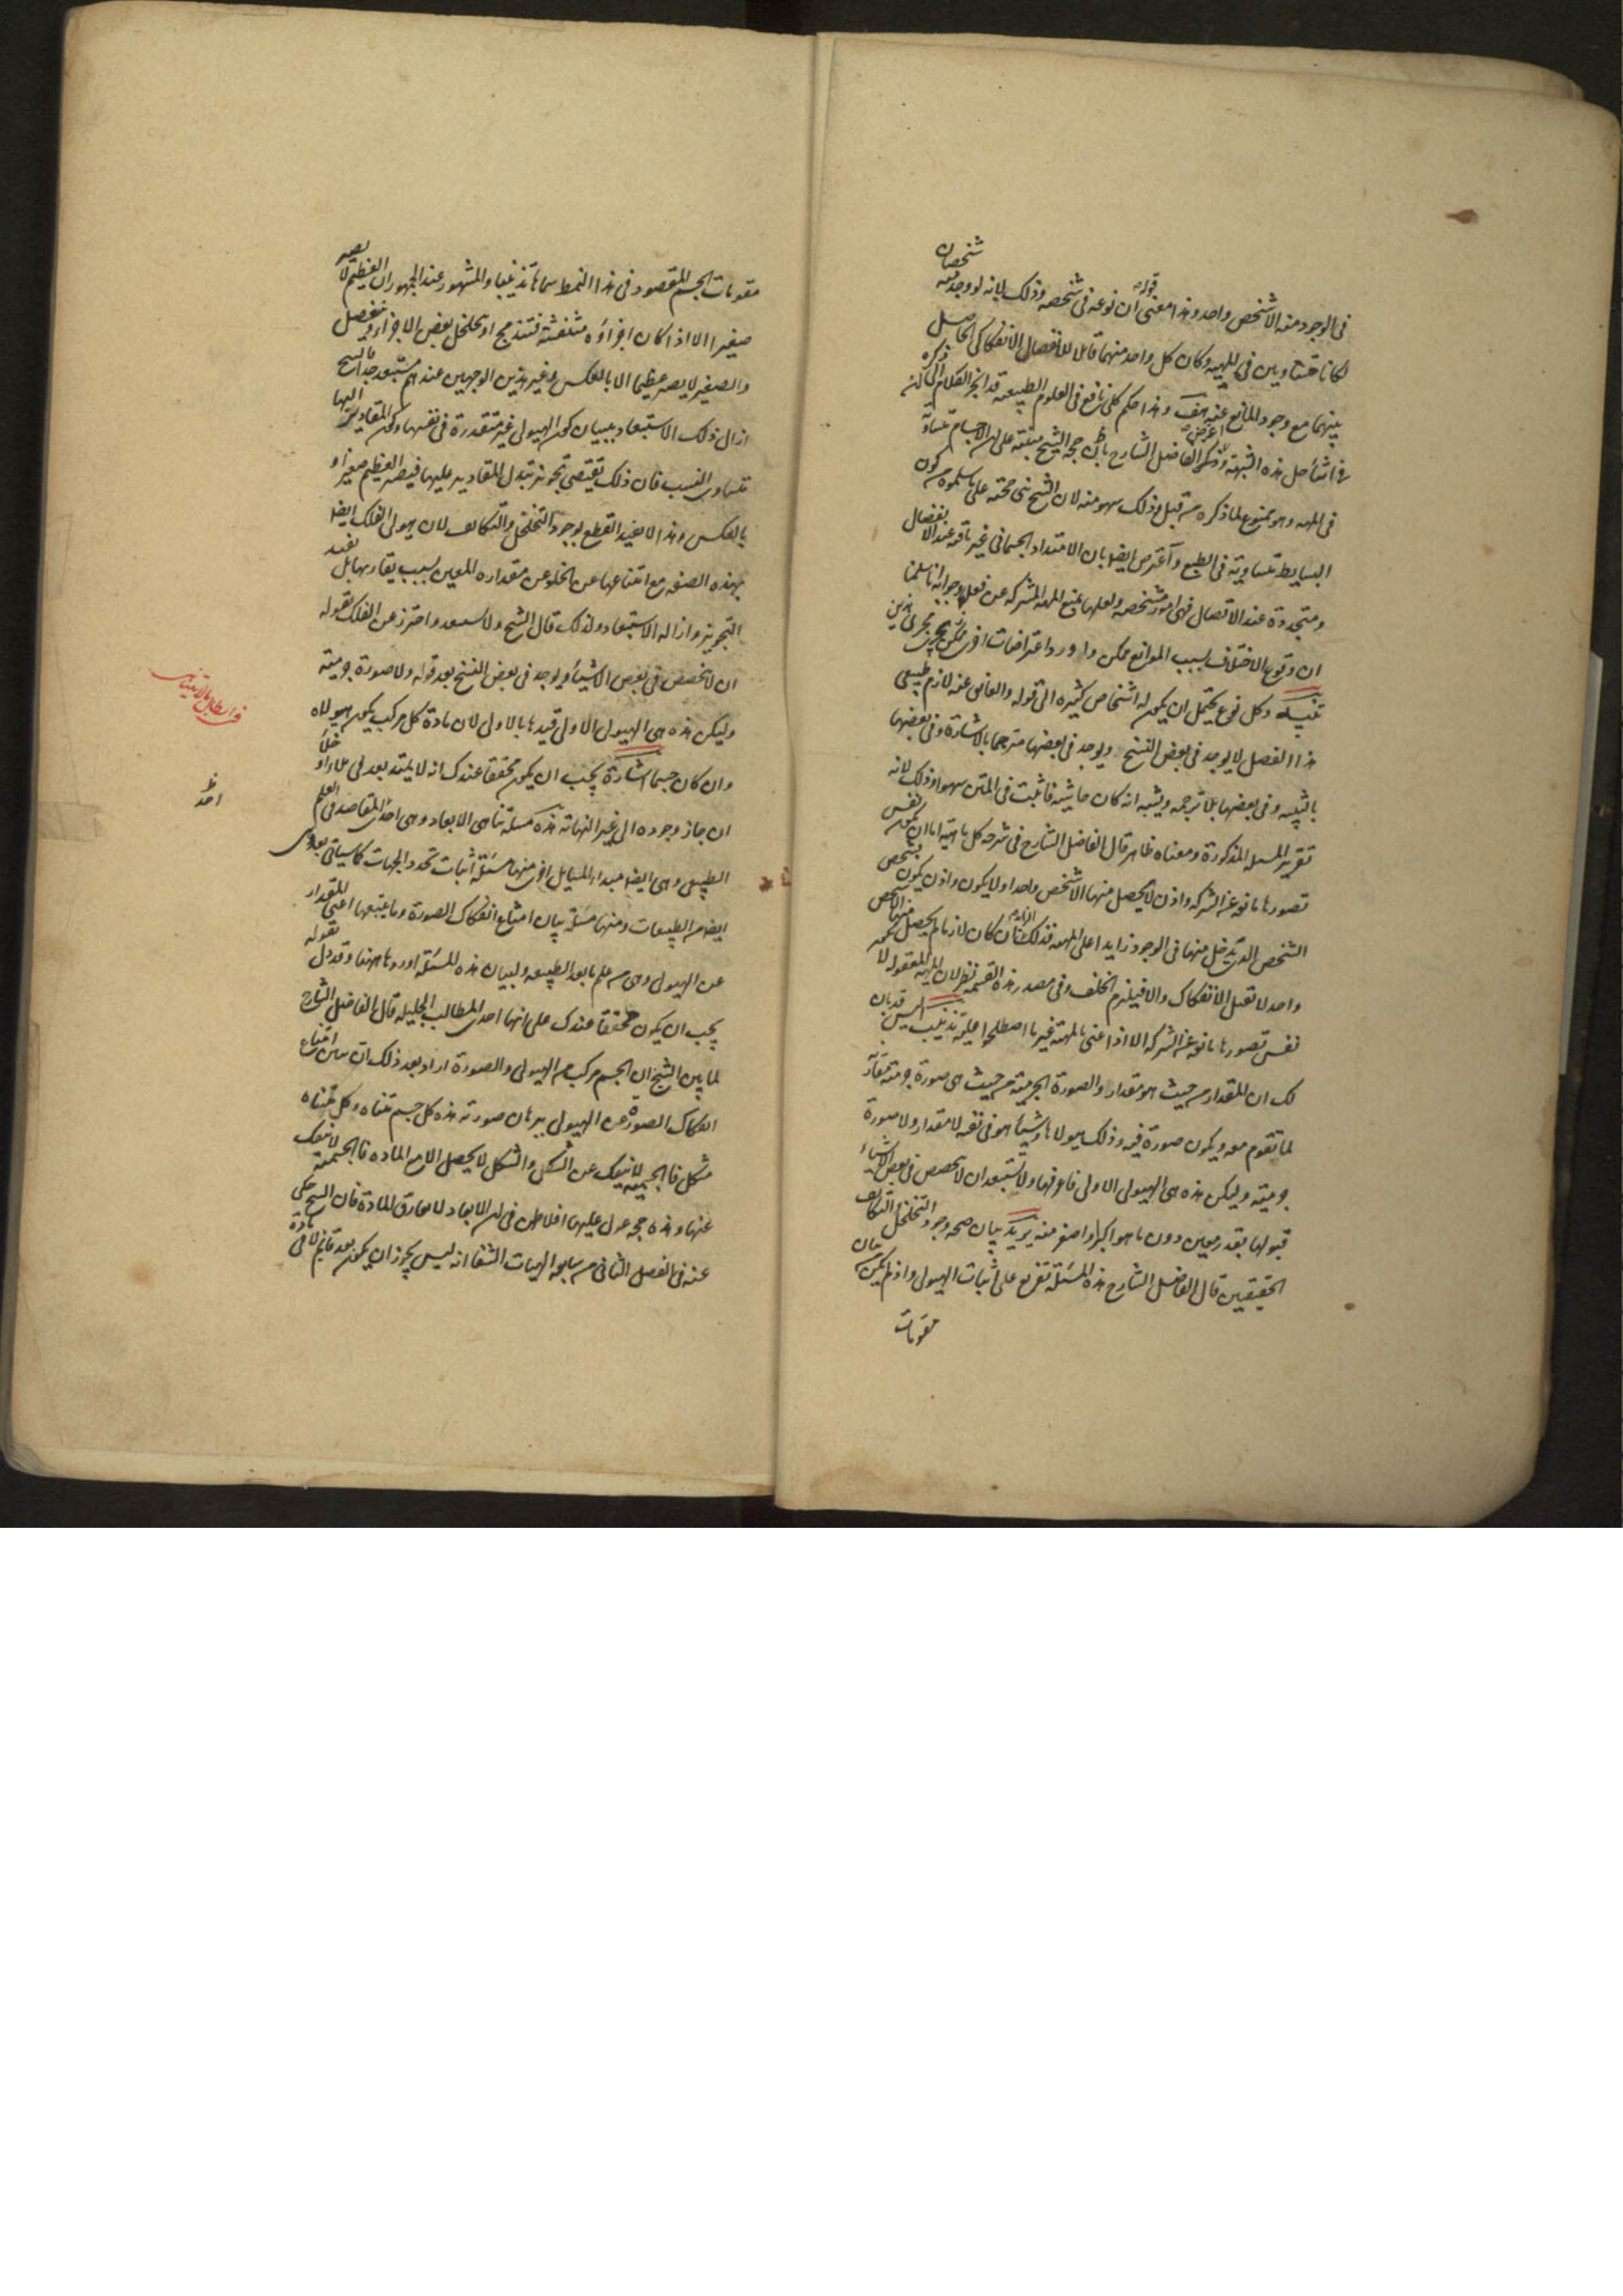 شخصان
فى الوجود منه الا شخص واحد وهذا معنى قوله ان نوعه فى شخصه وذلك لانه لو وجد معه
لكانا متساويين فى المهية وكان كل واحد منهما قابلا للانفصال الانفكاكى الحاصل
بينهما مع وجود المانع عنه هف وهذا حكم كلى نافع فى العلوم الطبيعية قد انجر الكلام اليه
حل هذه الشبهة الفاضل الشارح بان حجة الشيخ مبنية على ان الاجسام متساوية
فى المهية وهو ممنوع لما ذكره من قبل وذلك سهو منه لان الشيخ بنى حجته على ما سلموه من كون
البسايط متساوية فى الطبع واعترض ايضا بان الامتداد الجسمانى غير باقية عند الانفصال
ومتجددة عند الاتصال فهى امور متشخصة ولعلها تمنع المهية المشتركة عن فعلها وجوابه انا سلمنا
ان وقوع الاختلاف بسبب الموانع ممكن واورد اعتراضات اخر يجرى مجرى هذين
تنبيه وكل نوع يحتمل ان يكون له اشخاص كثيرة الى قوله والعائق عنه لازم طبيعى
هذا الفصل لا يوجد فى بعض النسخ ويوجد فى بعضها مترجما بالاشارة وفى بعضها
بالتنبيه وفى بعضها بلا ترجمة ويشبه انه كان حاشية فاثبت فى المتن سهوا وذلك لانه
تقرير المسئلة المذكورة ومعناه ظاهر قال الفاضل الشارح فى شرحه كل ماهية اما ان يكون نفس
تصورها مانعة عن الشركة واذن لا يحصل منها الا شخص واحد او لا يكون واذن يكون تشخص
الشخص الذى يدخل منها فى الوجود زايدا على المهية فذلك الزايد ان كان لازما لم يحصل منها الا شخص
واحد لا تقبل الانفكاك والا فيلزم الخلف وفى مصدر هذه القسمة نظر لان المهية المعقولة لا يكون
نفس تصورها مانعة عن الشركة الا اذا عنى بالمهية غير ما اصطلحوا عليه تذنيب اليس قد بان
لك ان المقدار من حيث هو مقدار والصورة الجرمية من حيث هى صورة جرمية مقارنة
لما تقوم معه ويكون صورة فيه وذلك هيولاها وشيئا هو فى نفسه لا مقدار ولا صورة
جرمية وليكن هذه هى الهيولى الاولى فاعرفها ولا تستبعد ان لا تتخصص فى بعض الاشياء
قبولها بقدر معين دون ما هو اكبر او اصغر منه يريد بيان صحة وجود التخلخل والتكاثف
الحقيقيين قال الفاضل الشارح هذه المسئلة تفريع على اثبات الهيولى واذ لم يكن بيان
مقومات
مقومات الجسم المقصود فى هذا النمط سماها تذنيبا والمشهور عند الجمهور ان العظيم لا يصير
صغيرا الا اذا كان اجزاؤه متنفشة فتندمج او يتخلخل بعض الاجزاء وينفصل
والصغير لا يصير عظيما الا بالعكس وغير هذين الوجهين عندهم مستبعد جدا فالشيخ
ازال ذلك الاستبعاد ببيان كون الهيولى غير متقدرة فى نفسها وكون المقادير اليها
متساوى النسب فان ذلك يقتضى تجويز تبدل المقادير عليها فيصير العظيم صغيرا و
بالعكس وهذا لا يفيد القطع بوجود التخلخل والتكاثف لان هيولى الفلك ايضا
بهذه الصفة مع امتناعها عن الخلو عن مقداره المعين لسبب يقارنها بل يفيد
التجويز وازالة الاستبعاد ولذلك قال الشيخ ولا تستبعد واحترز عن الفلك بقوله
ان لا تتخصص فى بعض الاشياء ويوجد فى بعض النسخ بعد قوله ولا صورة جرمية
وليكن هذه هى الهيولى الاولى قيدها بالاولى لان مادة كل مركب يكون هيولاه
وان كان جسما اشارة يجب ان يكون محققا عندك انه لا يمتد بعد فى ملاء او خلاء
ان جاز وجوده الى غير النهاية هذه مسئلة تناهى الابعاد وهى احدى المقاصد فى العلم
الطبيعى وهى ايضا مبداء لمسايل اخر منها مسئلة اثبات تحدد الجهات كما سياتى بعد وهى
ايضا من الطبيعيات ومنها مسئلة بيان امتناع انفكاك الصورة وما يتبعها اعنى المقدار
عن الهيولى وهى من علم ما بعد الطبيعة ولبيان هذه المسئلة اوردها ههنا وقد دل بقوله
يجب ان يكون محققا عندك على انها احدى المطالب الجليلة قال الفاضل الشارح
لما بين الشيخ ان الجسم مركب من الهيولى والصورة اراد بعد ذلك ان يبين امتناع
انفكاك الصورة عن الهيولى ببرهان صورته هذه كل جسم متناه وكل متناه
مشكل فالجسمية لا تنفك عن الشكل والشكل لا يحصل الا مع المادة فالجسمية لا تنفك
عنها وهذه حجة عول عليها افلاطن فى ان الابعاد لا تفارق المادة فان الشيخ حكى
عنه فى الفصل الثانى من سابعة الهيات الشفا انه ليس يجوز ان يكون بعد قايم لا فى مادة